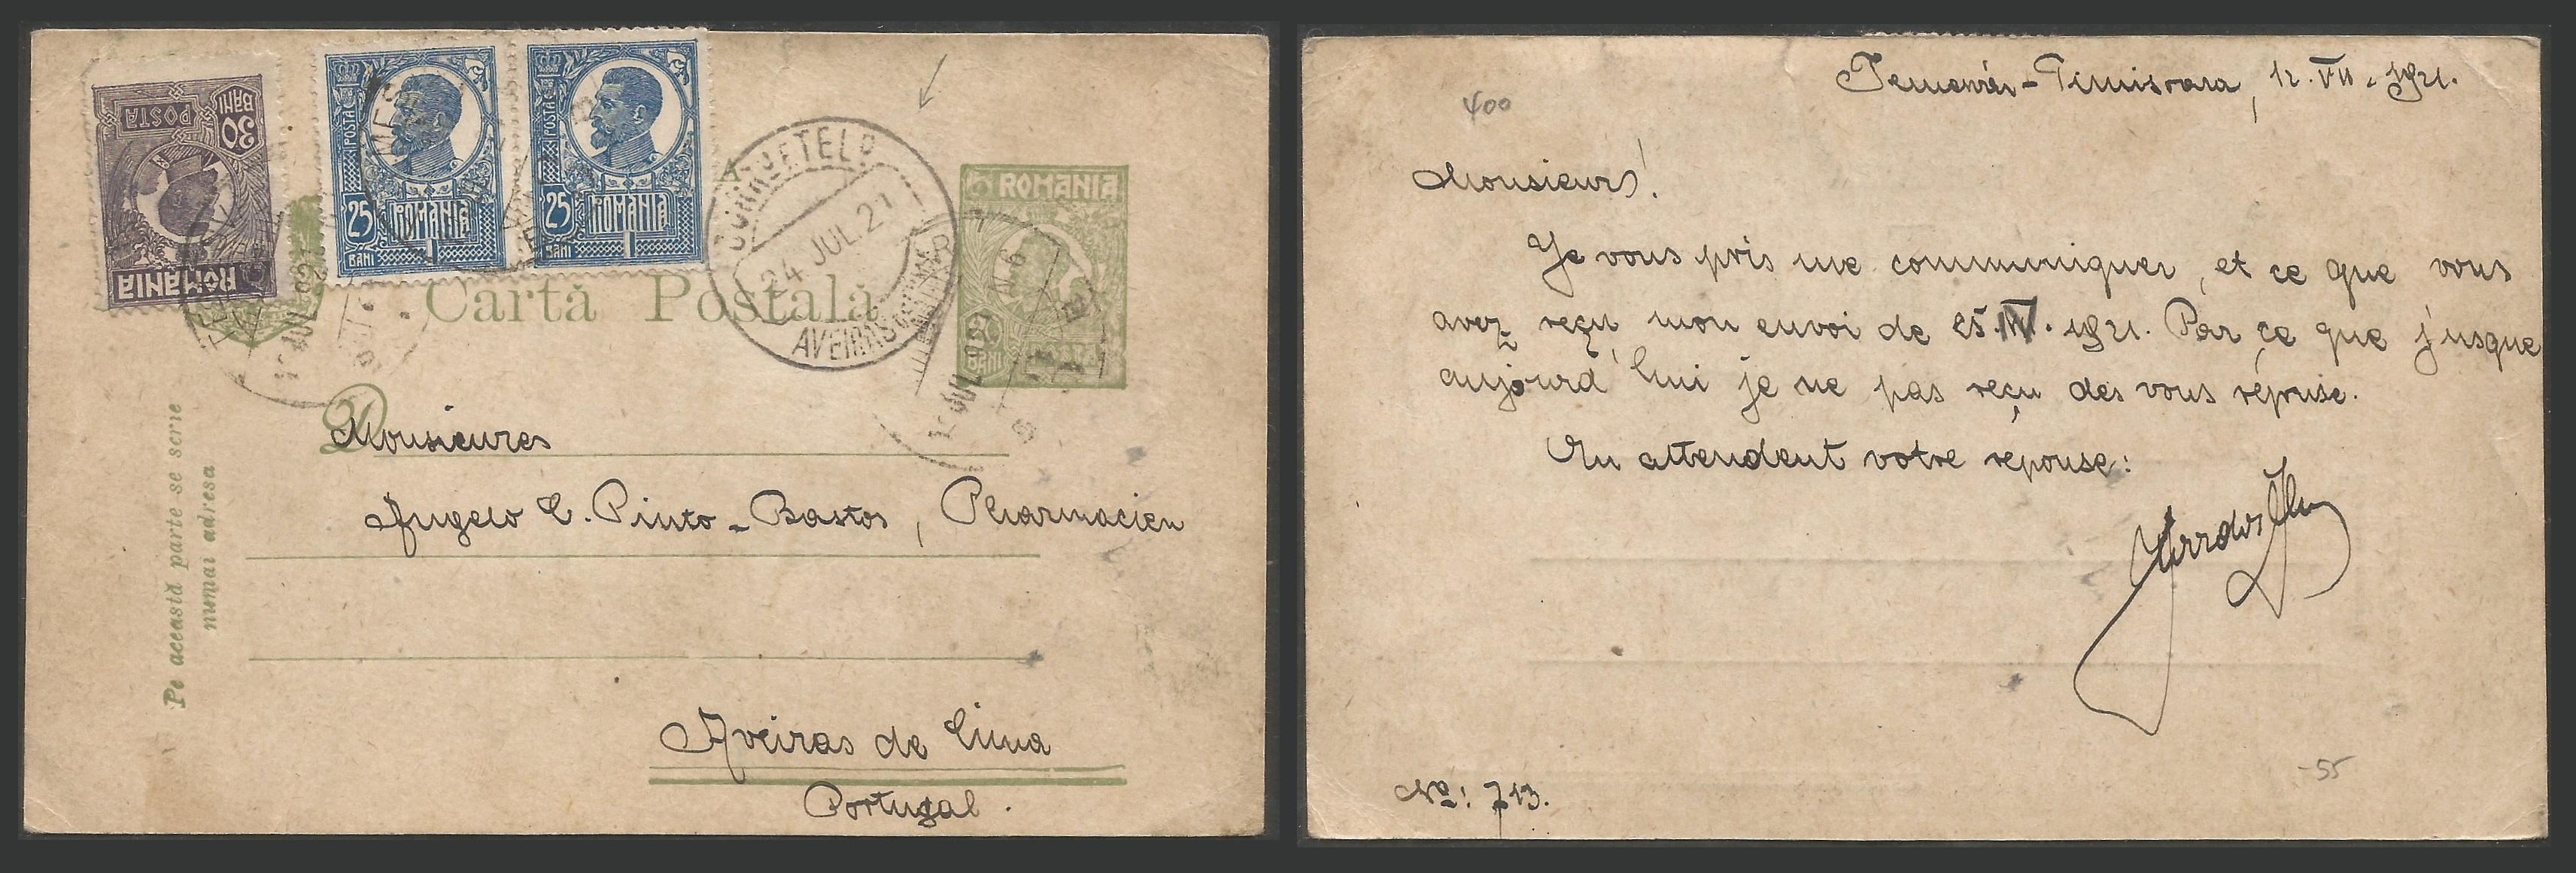 30
BANI
POSTA
ROMANIA
POSTA
25
ROMANIA
BANI
POSTA
25
ROMANIA
BANI
ROMANIA
BANI
24 JUL. 21
AVEIRAS DE CIMA
Cartă Poștală
D
Monsieures
Angelo C. Pinto-Bastos, Pharmacien
Aveiras de Cima
Portugal.
Pe această parte se scrie
numai adresa
400
Temesvár-Timisoara, 12. VII. 1921.
Monsieurs!
Je vous pris me communiquer, et ce que vous
avez reçu mon envoi de 25. IV. 1921. Par ce que j'usque
aujourd'hui je ne pas reçu des vous réponse.
En attendent votre reponse:
No: 713.
-55